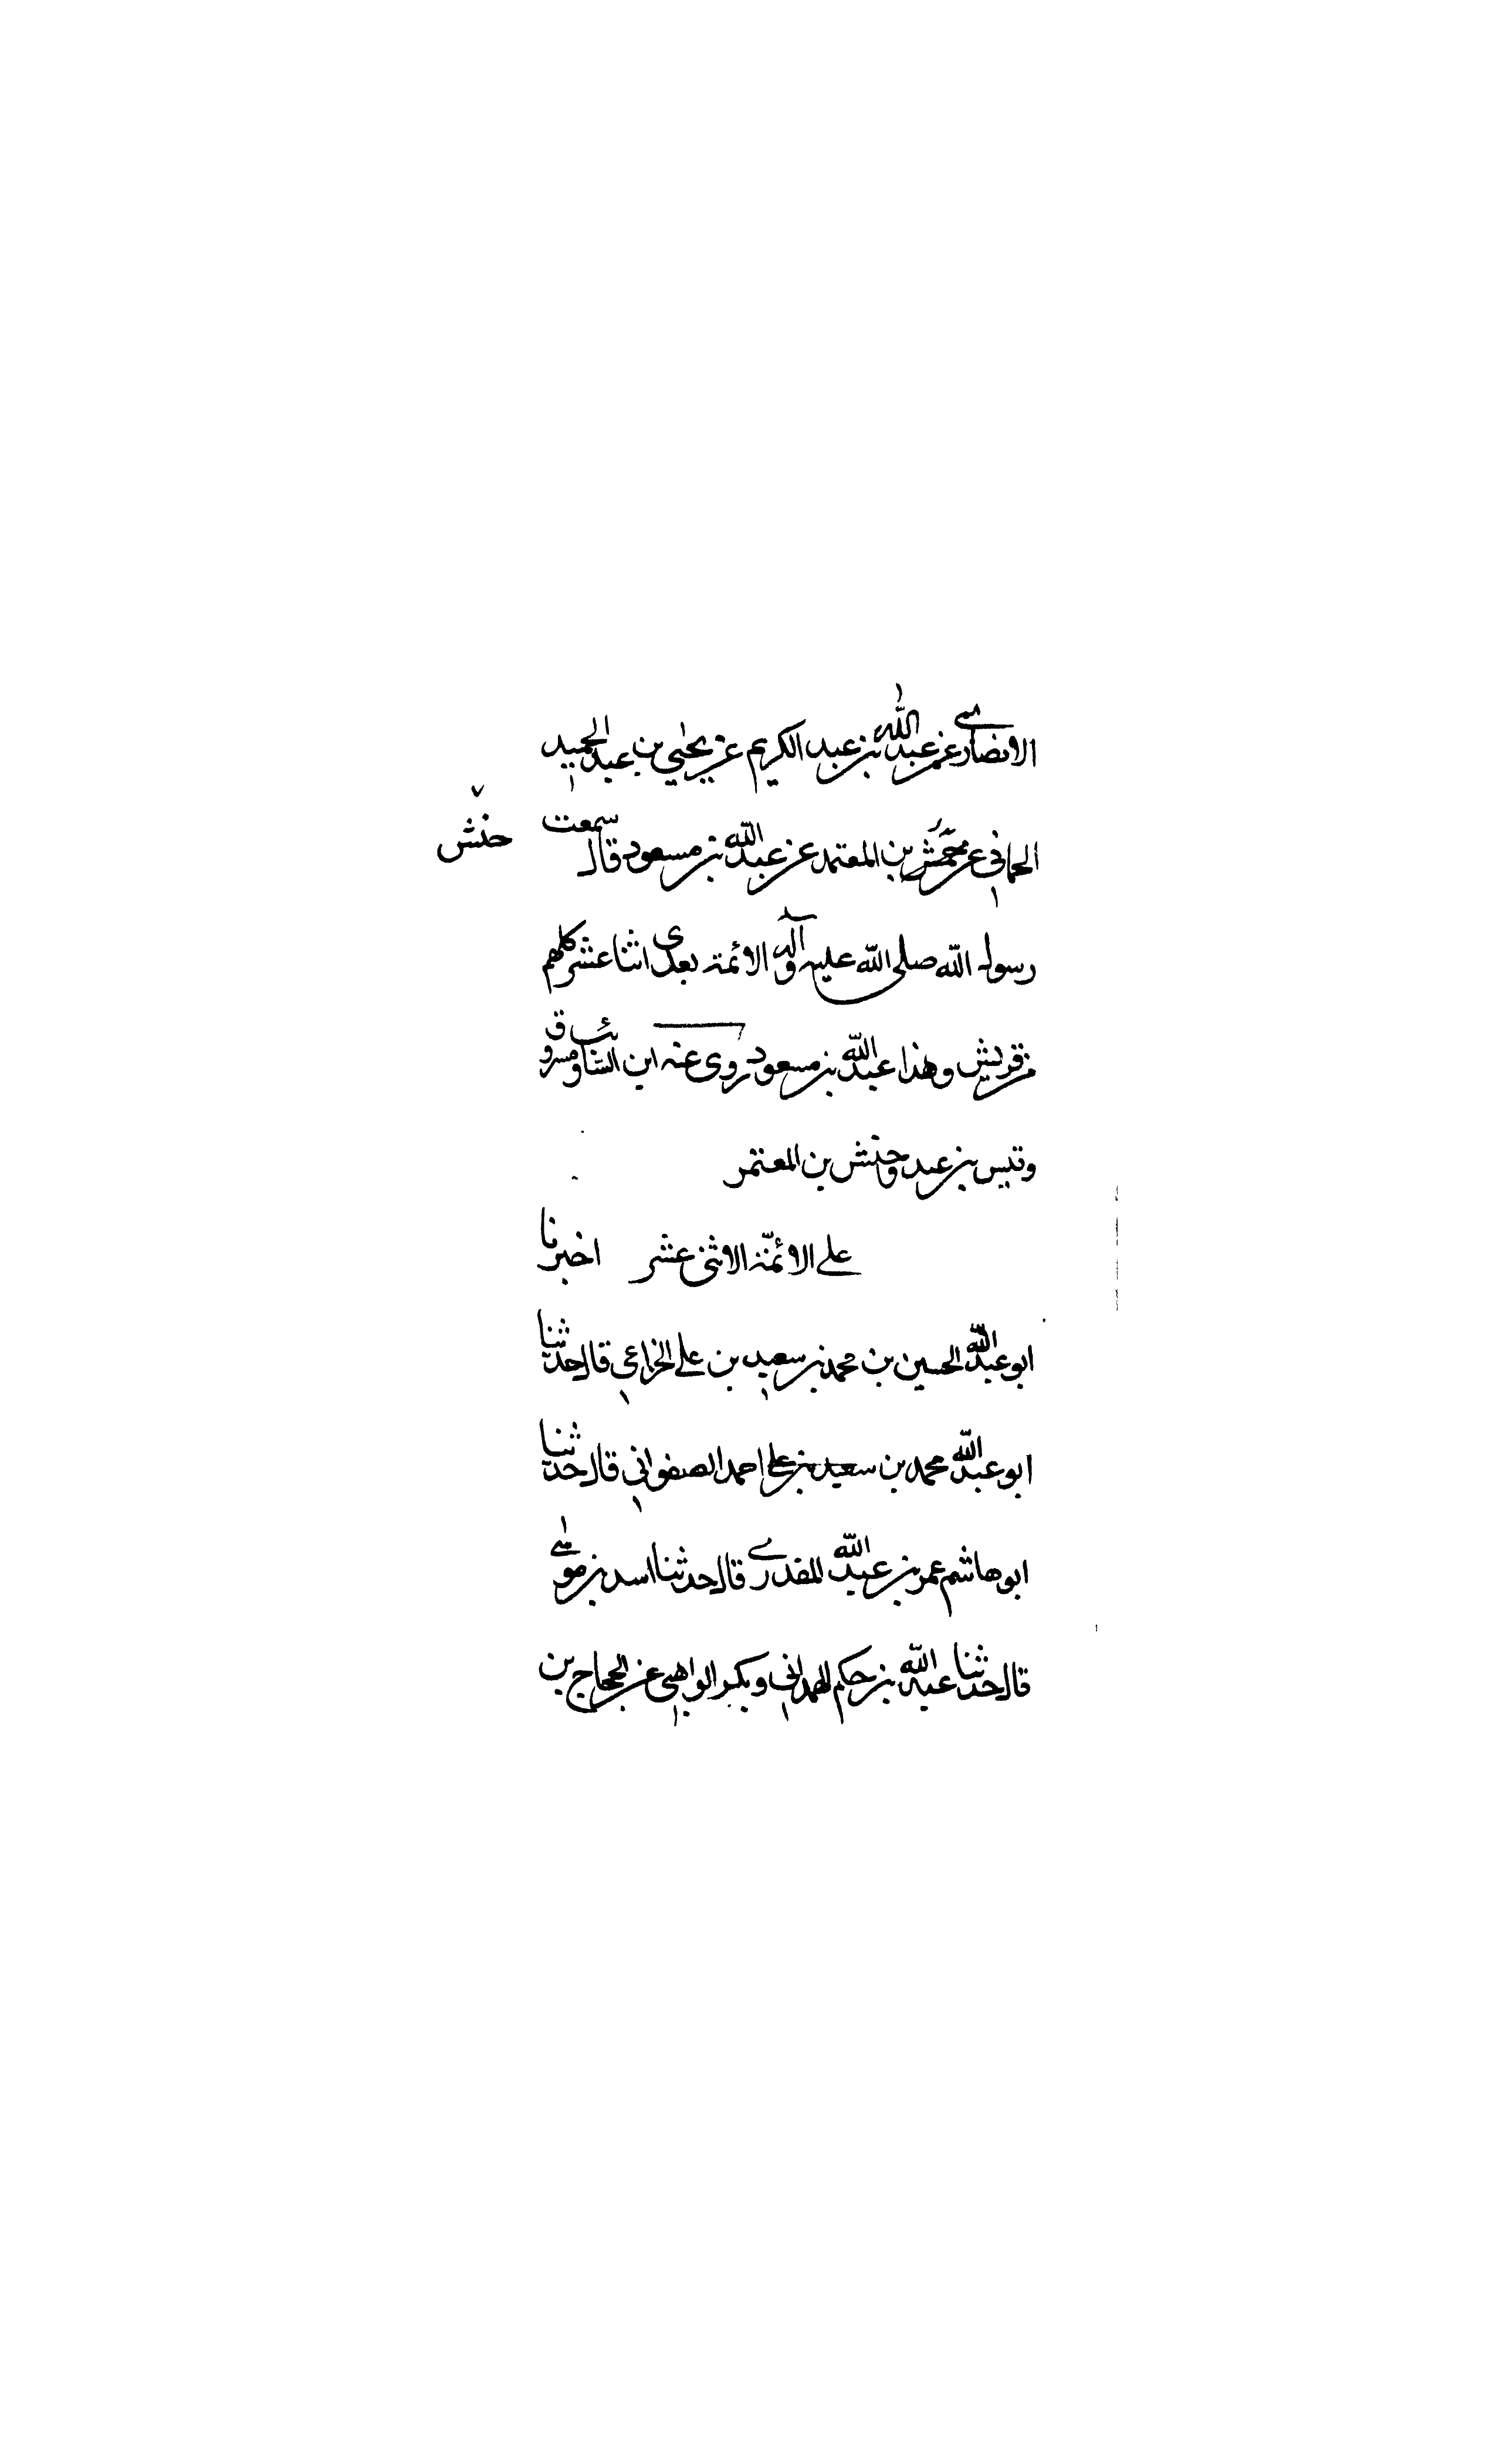 الانصاري عن عبد الله بن عبد الكريم عن يحيي بن عبد الحميد
الحماني عن محمش بن المعتمد عن عبد الله بن مسعود قال سمعت
حنش
رسول الله صلى الله عليه وآله الائمة بعدى اثنا عشر كلهم
من قريش وهذا عبد الله بن مسعود روى عنه ابن السائب ومسروق
وقيس بن عبد وحنش بن المعتمر
علي الائمّة الاثنى عشر اخبرنا
ابو عبد الله الحسين بن محمد بن سعيد بن علي الخزاعي قال حدثنا
ابو عبد الله محمد بن سعيد بن علي احمد الصفواني قال حدثنا
ابو هاشم عمر بن عبد الله المقدري قال حدثنا اسد بن موسي
قال حدثنا عبد الله بن حكم الهمداني وبكر الواهبي عن الحجاج بن